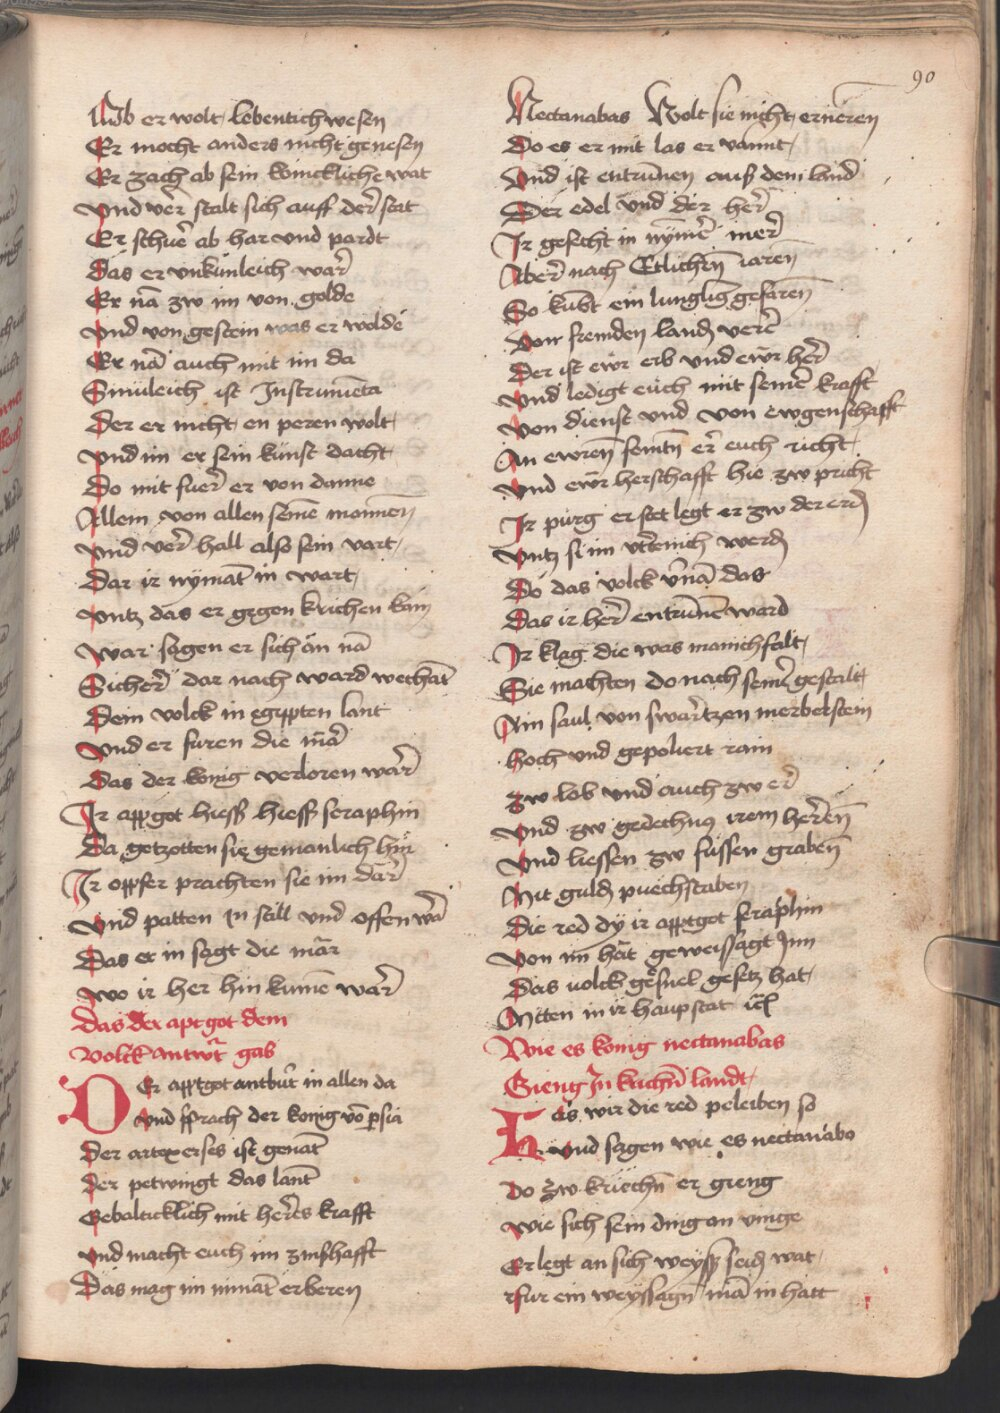 90
Ob er wolt lebentich wesen
Er mocht anders nicht genesen
Er zach ab sein kuncklichе wat
Vnd vēr stalt sich auff der stat
Er schuē ab har vnd pardt
Das er vnkunleich wār
Er nā zw im von golde
Vnd von gestein was er wolde
Er nā auch mit im da
Smuleich ist Instrumēta
Der er nicht en peren wolt
Vnd im er sein kunst dacht
Do mit fuer er von danne
Allem von allen seinē mannen
Vnd vēr hall also sein vart
Dar ir nymāt in wart
Vntz das er gegen krichen kam
War sagen er sich an nā
Sicher dar nach ward wechāt
Dem volck in egypten lant
Vnd er furen die mār
Das der konig verloren wār
Ir apgot hiess hiess seraphin
Da getzotten sie gemanlich hin
Ir opfer prachten sie im dar
Vnd patten In still vnd offen wār
Das er in sagt die mār
Wo ir her hin kumē wār
Das der aptgot dem
Volck antwūrt gab
Der apptgot antbūrt in allen da
Vnd sprach der konig vō persia
Der artoxerses ist genāt
Der petwingt das lant
Gebalticklich mit herēs krafft
Vnd macht euch im zinshafft
Das mag im nimāt erberen
Nectanabas Wolt sie nicht erneren
Do es er mit las er vannt
Vnd ist entrunnen auß dem land
Der edel vnd der her
Ir gesecht in nymēr mer
Aber nach Etlichen iaren
So kūbt ein lungling gefaren
Von fremden landen verē
Der ist ewr erb vnd ewr her
Vnd ledigt euch mit seinē krafft
Von dienst vnd von ewgenschafft
An ewren feintn er euch richt
Vnd ewr herschafft hie zw pricht
Ir purg er stet legt er zw der erd
Vntz si im vttenich werd
Do das volck v̄nā das
Das ir her entrunē ward
Ir klag die was manichfalt
Sie machten do nach seiner gestalt
Ain saul von swartzen merbelstein
Hoch vnd gepoliert rain
Zw lob vnd auch zw er
Vnd zw gedechnus irem herēn
Vnd liessen zw fussen graben
Mit guldn puechstaben
Die red dy ir apptgot seraphin
Von im hāt geweissagt Inn
Das volck gesuel gesetz hat
Mitten in ir haupstat
Wie es konig nectanabas
Gieng In krichn landt
Hēs wir die red peleiben so
Vnd sagen wie es nectanabo
Do zw kriechn er gieng
Wie sich sein ding an vinge
Er legt an sich weyss seidn wat
Fur ein weyssagn mā in hatt